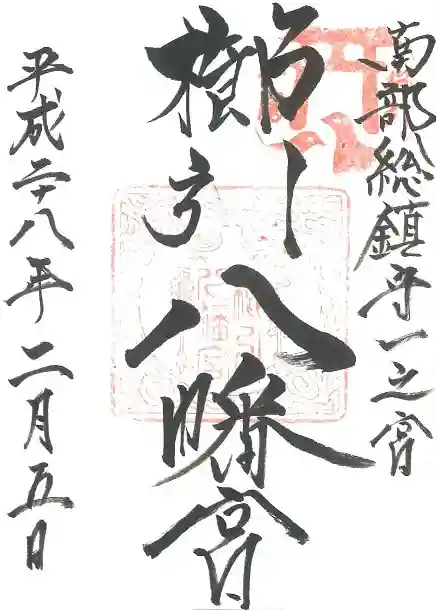 南部総鎮守一之宮
櫛引八幡宮
平成二十八年二月五日